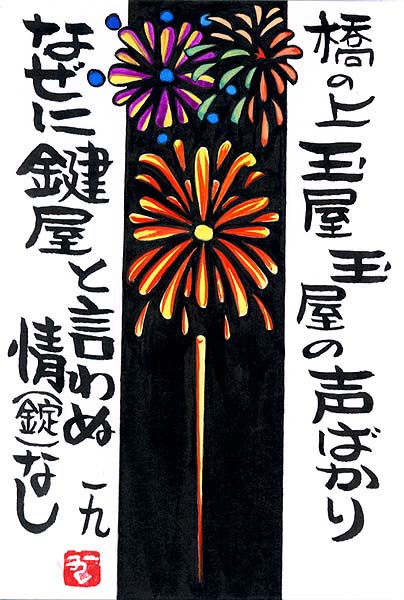 橋の上玉屋玉屋の声ばかり
なぜに鍵屋と言わぬ
情(錠)なし
一九